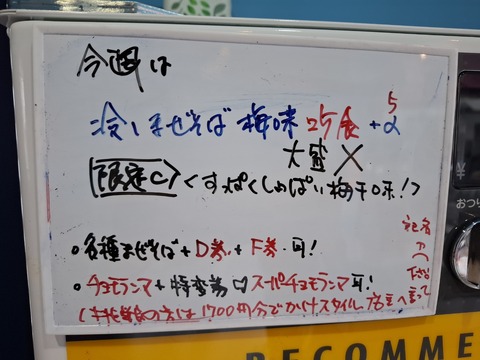 今週は
冷しまぜそば 梅味 25食 +α 5
大盛 ✕
限定C <すっぱくしょっぱい梅干味!>
・各種まぜそば+D券+F券 可!
・チョモランマ+特変券 スーパーチョモランマ可!
の方は1700円分でかけスタイル 店主へ言って
下さい
¥
おつり
RECOMME